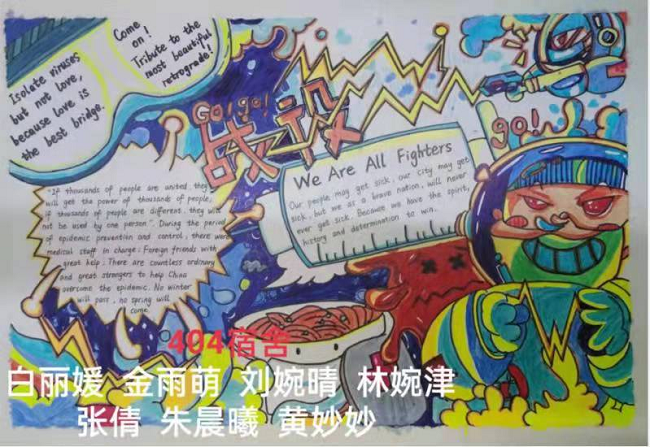 Isolate viruses
but not love,
because love is
the best bridge.
Come
on!
Tribute to the
most beautiful
retrograde!
Go! go!
战役
go!
We Are All Fighters
Our people may get sick, our city may get
sick, but we as a brave nation, will never
ever get sick. Because we have the spirit,
history and determination to win.
"If thousands of people are united, they
will get the power of thousands of people;
if thousands of people are different, they will
not be used by one person". During the period
of epidemic prevention and control, there were
medical staff in charge; Foreign friends with
great help; There are countless ordinary
and great strangers to help China
overcome the epidemic. No winter
will pass, no spring will
come.
404宿舍
白丽媛 金雨萌 刘婉晴 林婉津
张倩 朱晨曦 黄妙妙